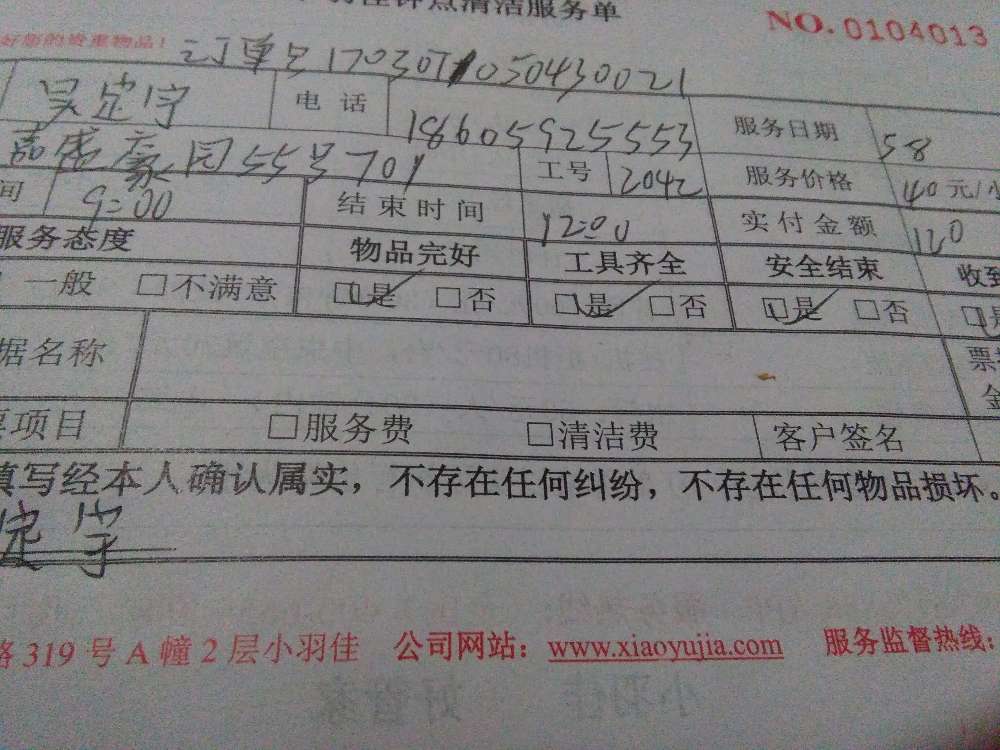 钟点清洁服务单 NO. 0104013
好您的贵重物品!
订单号
吴定宇 电话 18605925553 服务日期 58
嘉盛豪园55号701 工号 2042 服务价格 40元/小
间 9:00 结束时间 12:00 实付金额 120
服务态度 物品完好 工具齐全 安全结束 收到
一般 □不满意 □是 □否 □是 □否 □是 □否 □是
据名称 票据
金
项目 □服务费 □清洁费 客户签名
填写经本人确认属实，不存在任何纠纷，不存在任何物品损坏。
定宇
路319号A幢2层小羽佳 公司网站：www.xiaoyujia.com 服务监督热线: